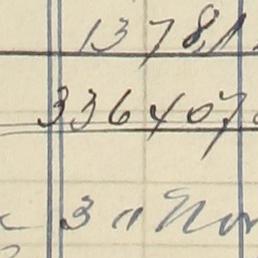 13781
336407
3 " Nov